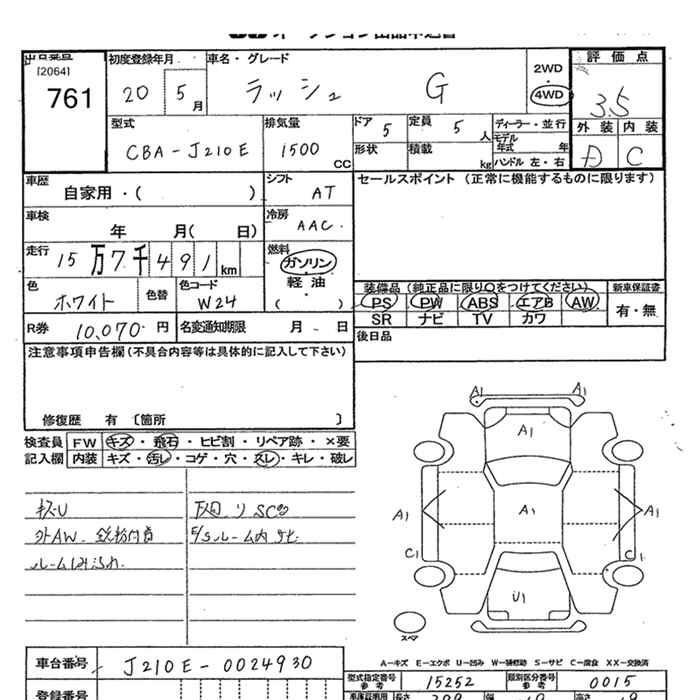 [2064]
761
初度登録年月
20 5月
車名・グレード
ラッシュ G
2WD
4WD
評価点
3.5
外装 内装
D C
型式
CBA-J210E
排気量
1500 CC
ドア 5
定員 5 人
形状
積載 kg
ディーラー・並行
モデル年式 年
ハンドル 左・右
車歴
自家用・( )
シフト
AT
セールスポイント (正常に機能するものに限ります)
車検
年 月( 日)
冷房
AAC
走行
15万7千491km
燃料
ガソリン
軽油
( )
色
ホワイト
色替
色コード
W24
装備品 (純正品に限り○をつけてください)
PS PW ABS エアB AW
SR ナビ TV カワ
新車保証書
有・無
R券 10,070円
名変通知期限 月 日
後日品
注意事項申告欄(不具合内容等は具体的に記入して下さい)
修復歴 有 〔箇所 〕
検査員記入欄
FW キズ・飛石・ヒビ割・リペア跡・×要
内装 キズ・汚レ・コゲ・穴・スレ・キレ・破レ
キズU
外AW
ルーム
A1 A1
A1
A1 A1 A1
C1 C1
U1
スペア
A―キズ E―エクボ U―凹み W―補修跡 S―サビ C―腐食 XX―交換済
車台番号 J210E-0024930
型式指定番号 参考 15252
類別区分番号 参考 0015
登録番号
長さ 幅 高さ